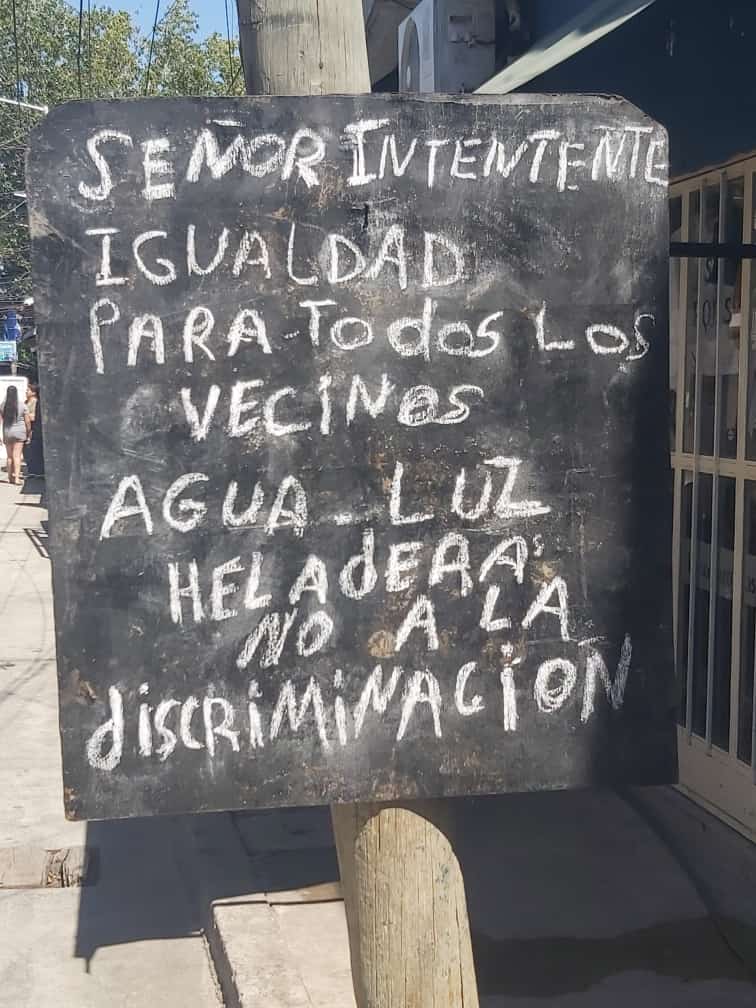 SEÑOR INTENTENTE
IGUALDAD
PARA-TodOS LOS
VECINOS
AGUA - LUZ
HELAdERA
NO A LA
diSCRiMiNACiÓN